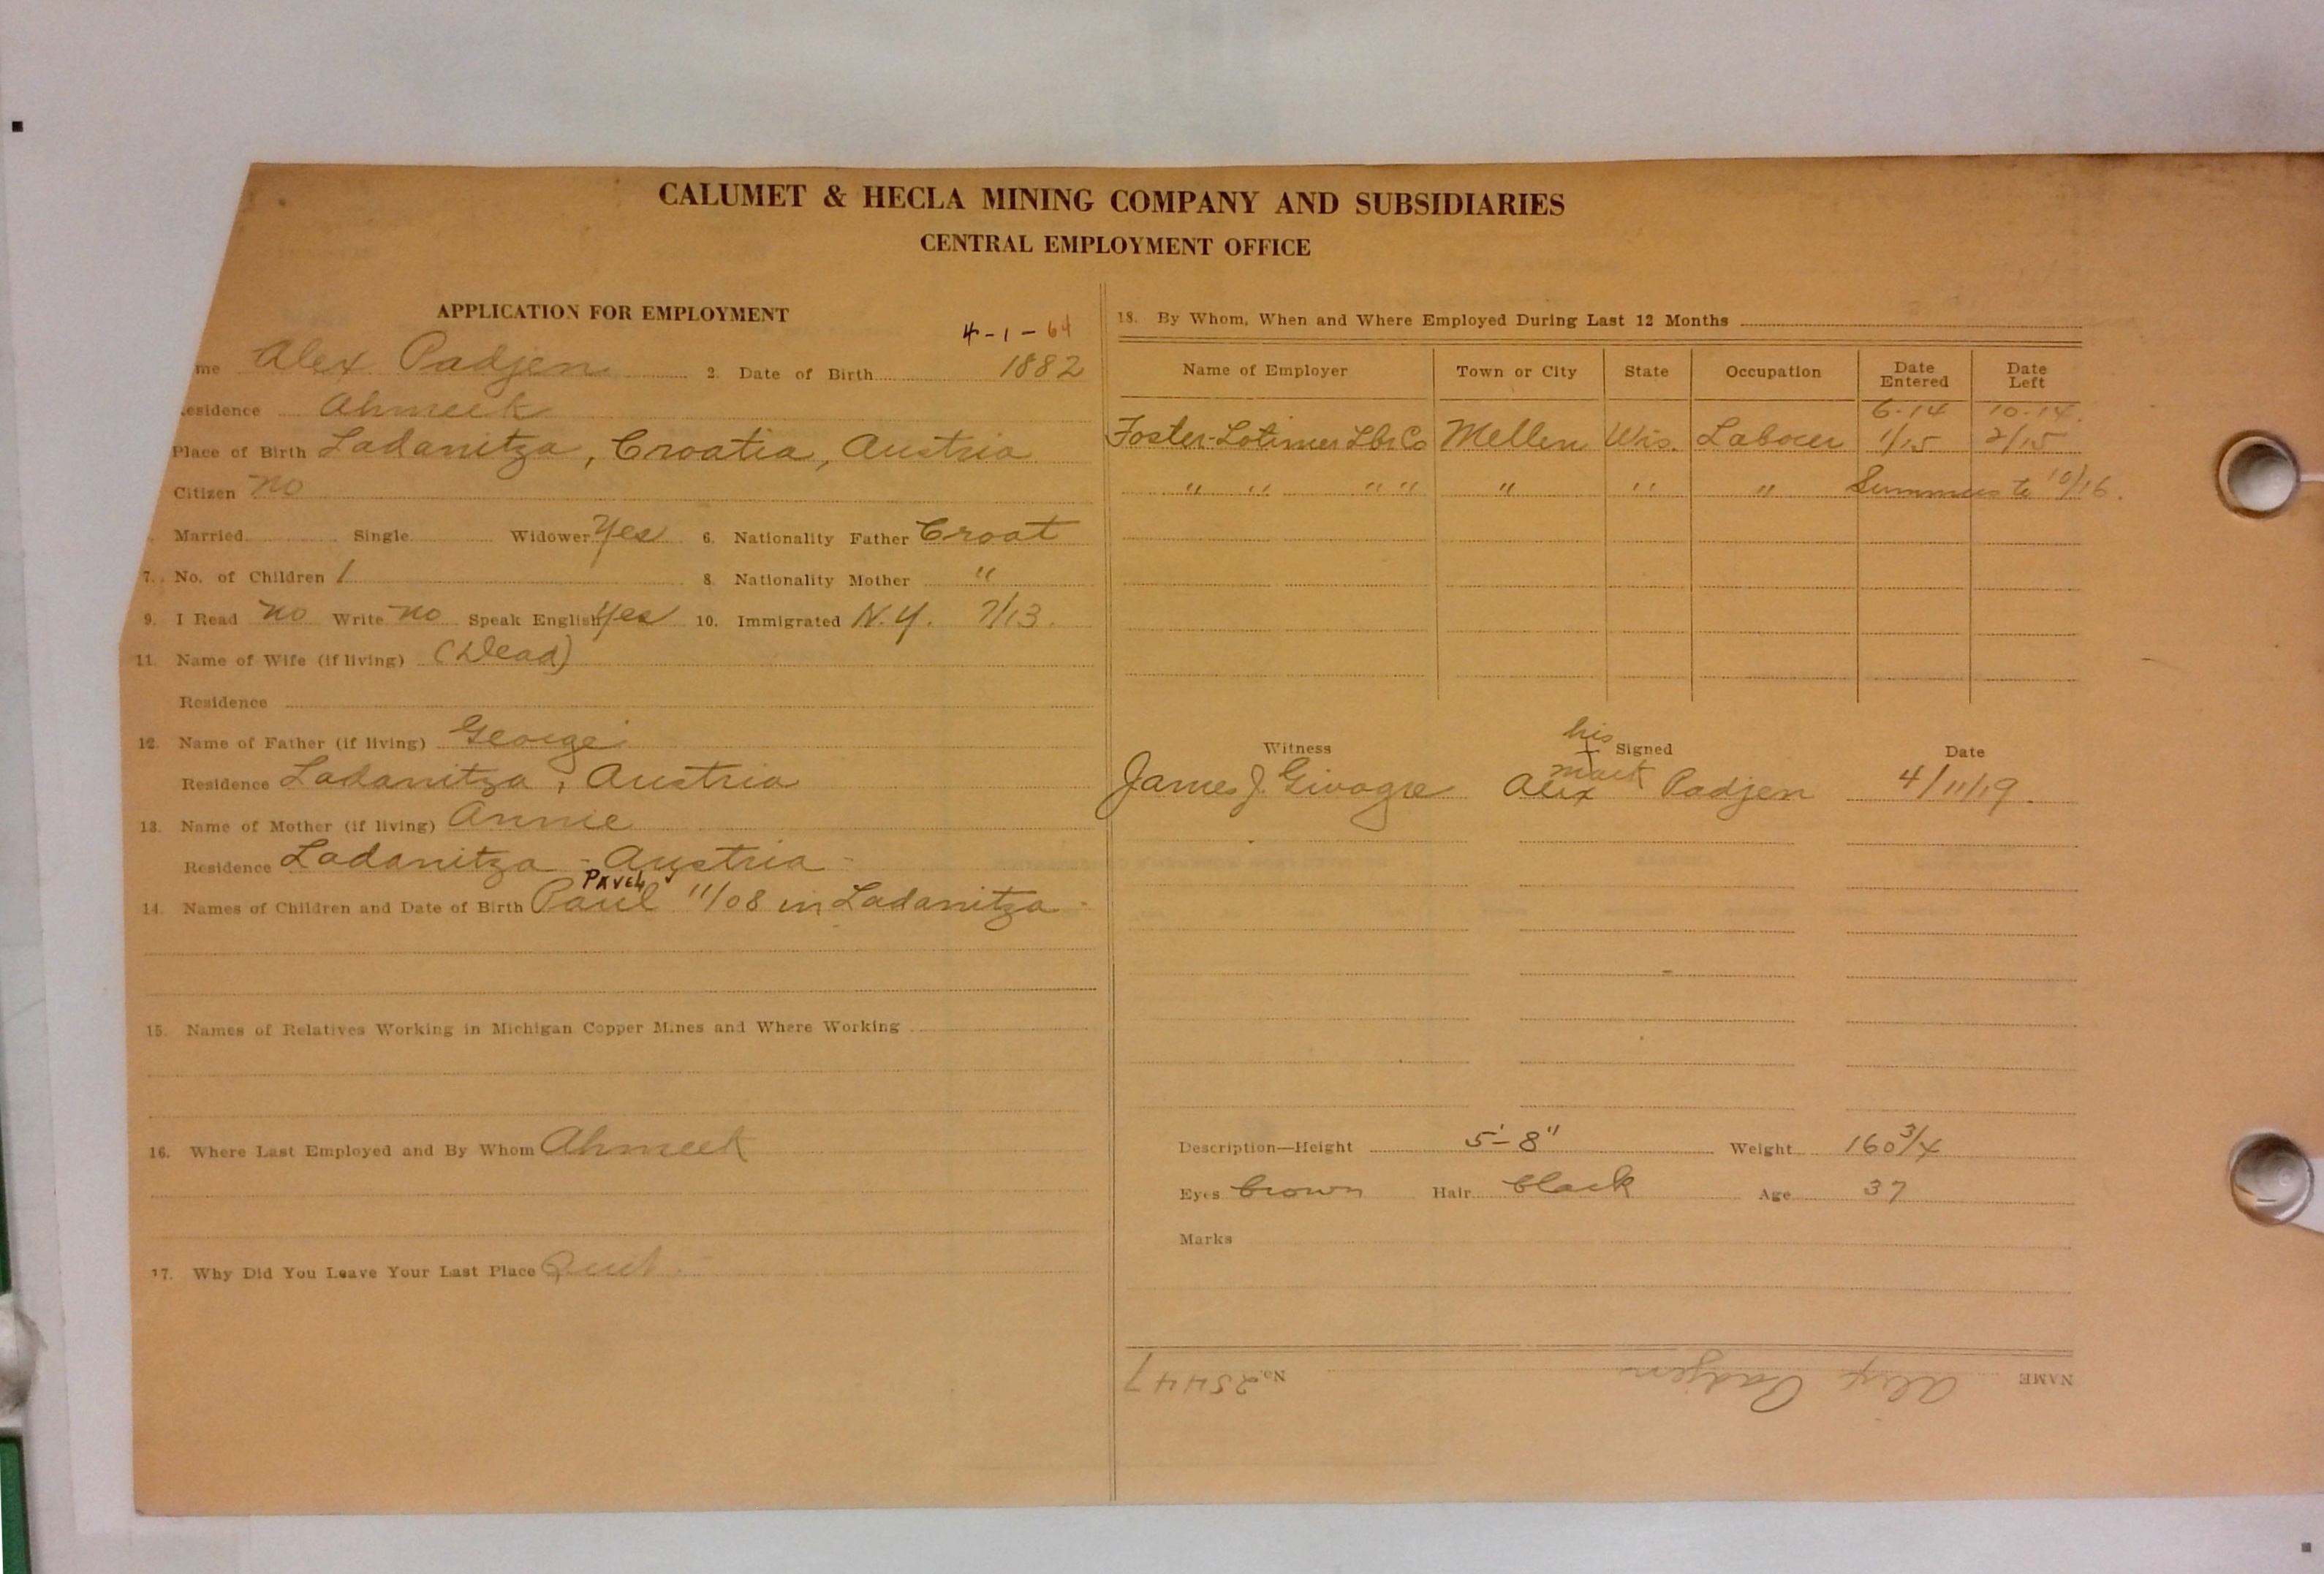 CALUMET & HECLA MINING COMPANY AND SUBSIDIARIES
CENTRAL EMPLOYMENT OFFICE
APPLICATION FOR EMPLOYMENT
4-1-64
me Alex Padjen 2. Date of Birth 1882
esidence Ahmeek
Place of Birth Ladanitza, Croatia, Austria
Citizen no
Married Single Widower Yes 6. Nationality Father Croat
7. No. of Children 1 8. Nationality Mother "
9. I Read no Write no Speak English Yes 10. Immigrated N.Y. 7/13.
11. Name of Wife (if living) (Dead)
Residence
12. Name of Father (if living) George
Residence Ladanitza, Austria
13. Name of Mother (if living) Annie
Residence Ladanitza - Austria -
PAVEL
14. Names of Children and Date of Birth Paul 11/08 in Ladanitza -
15. Names of Relatives Working in Michigan Copper Mines and Where Working
16. Where Last Employed and By Whom Ahmeek
17. Why Did You Leave Your Last Place Quit.
18. By Whom, When and Where Employed During Last 12 Months
Name of Employer Town or City State Occupation Date Entered Date Left
6-14 10-14.
Foster-Latimer Lbr Co Mellen Wis. Laborer 1/15 2/15
" " " " " " " Summers to 10/16.
his
Witness + Signed Date
mark
James J. Givogre Alex Padjen 4/11/19.
Description—Height 5'-8" Weight 160 3/4
Eyes brown Hair black Age 37
Marks
NAME Alex Padjen No. 25447